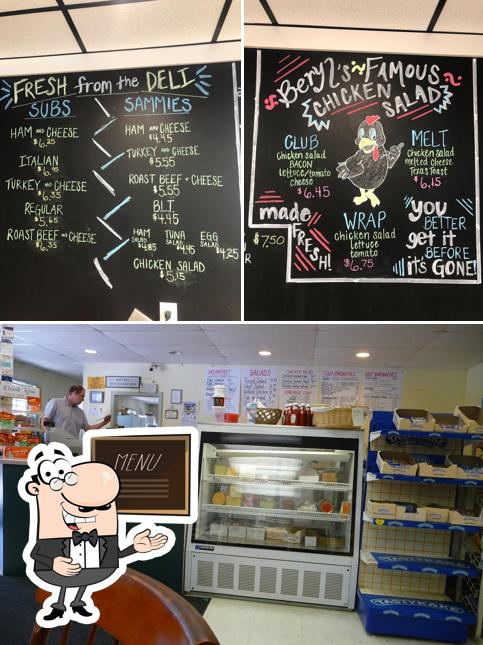 FRESH from the DELI
SUBS
HAM AND CHEESE
$6.25
ITALIAN
TURKEY AND CHEESE
$6.35
REGULAR
$5.65
ROAST BEEF AND CHEESE
$6.35
SAMMIES
HAM AND CHEESE
$4.45
TURKEY AND CHEESE
$5.55
ROAST BEEF + CHEESE
$5.55
BLT
$4.45
HAM SALAD
$4.85
TUNA SALAD
EGG SALAD
$4.25
CHICKEN SALAD
$5.15
Beryl's Famous
CHICKEN SALAD
CLUB
chicken salad
BACON
lettuce/tomato
cheese
$6.45
MELT
chicken salad
melted cheese
Texas Toast
$6.15
made
FRESH!
WRAP
chicken salad
lettuce
tomato
$6.75
you
BETTER
get it
BEFORE
it's GONE!
$7.50
R
Thank You
BREAKFAST
SALADS
CHICKEN SALAD
COLD SANDWICHES
HOT SANDWICHES
MENU
TASTYKAKE